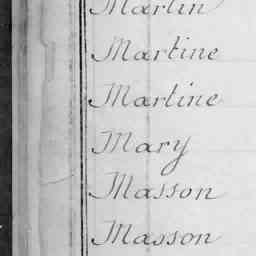 Martin
Martine
Martine
Mary
Masson
Masson